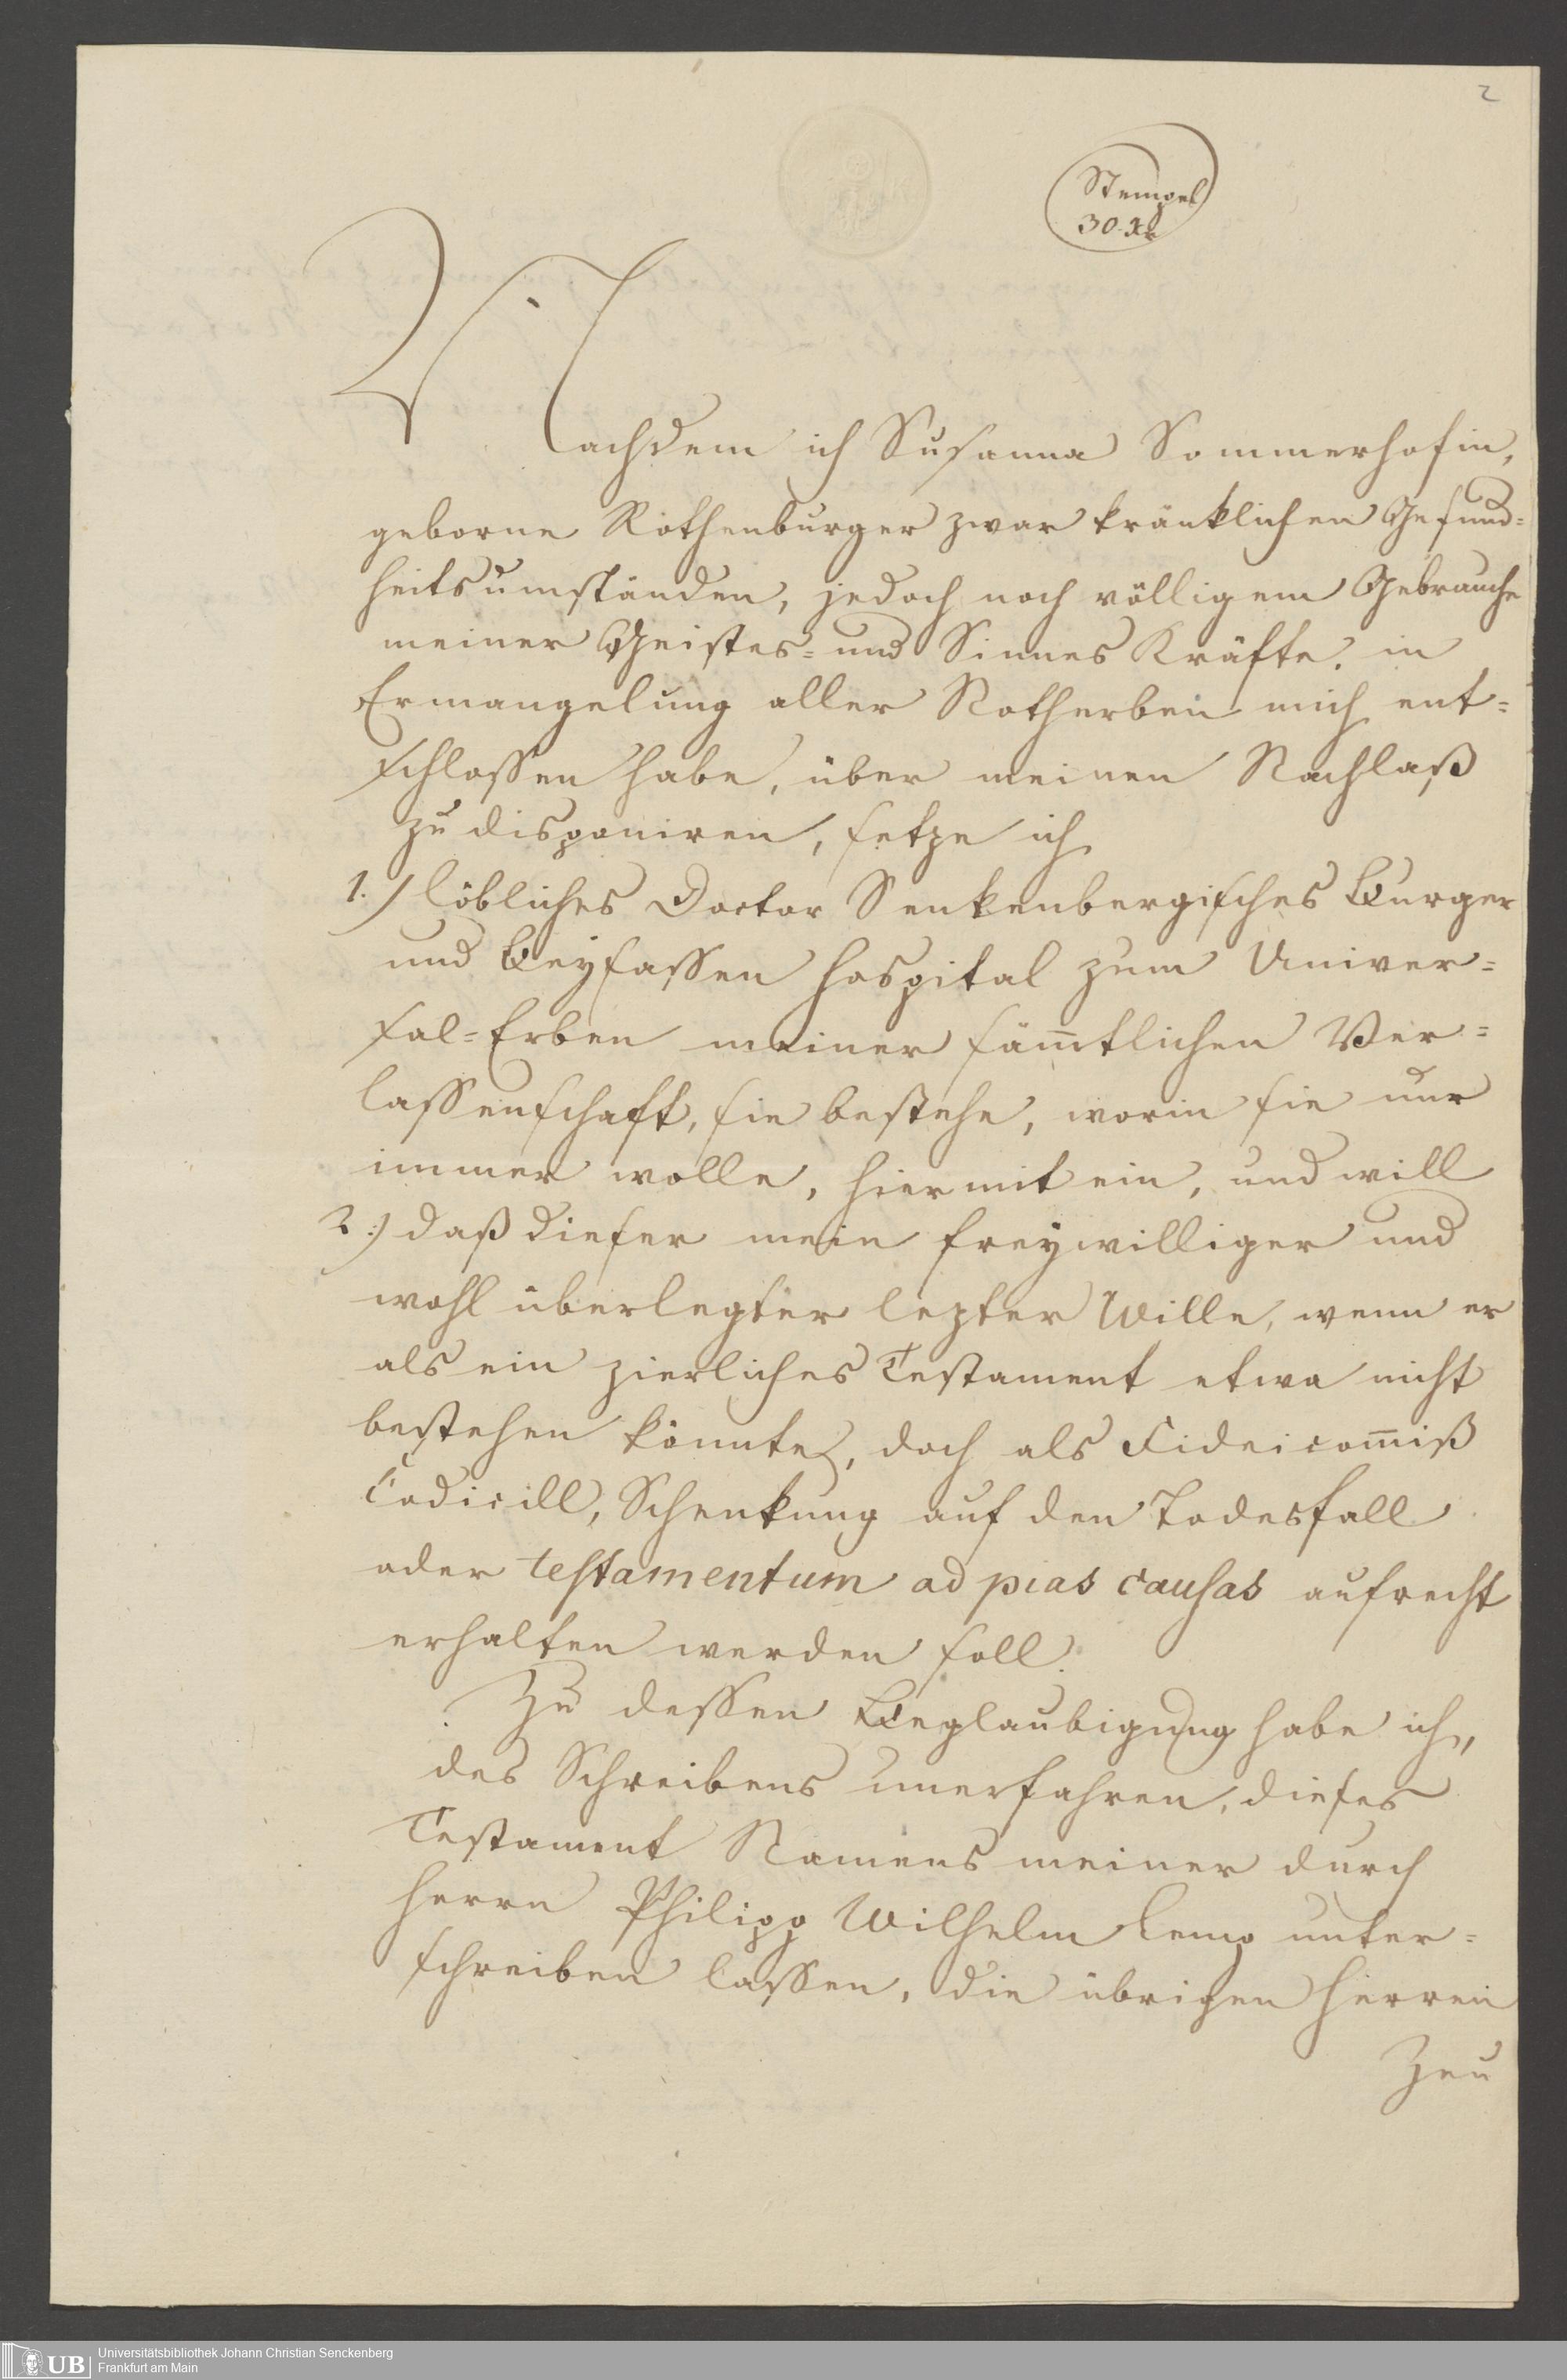 2
Stempel
30. Xr
Nachdem ich Susanna Sommerhofin,
geborne Rothenburger zwar kränklichen Gesund=
heitsumständen, jedoch noch völligem Gebrauche
meiner Geistes= und Sinnes Kräfte, in
Ermangelung aller Notherben mich ent=
schlossen habe, über meinen Nachlaß
zu disponiren, setze ich
1.) löbliches Doctor Senkenbergisches Burger
und Beysassen Hospital zum Univer=
sal=Erben meiner säm̄tlichen Ver=
lassenschaft, sie bestehe, worin sie nur
immer wolle, hiermit ein, und will
2.) daß dieser mein freywilliger und
wohl überlegter lezter Wille, wenn er
als ein zierliches Testament etwa nicht
bestehen könnte, doch als Fideicom̄iß
Codicill, Schenkung auf den Todesfall
oder testamentum ad pias causas aufrecht
erhalten werden soll.
Zu dessen Beglaubigung habe ich,
des Schreibens unerfahren, dieses
Testament Namens meiner durch
Herrn Philipp Wilhelm Lemp unter=
schreiben lassen, die übrigen Herren
Zeu
UB
Universitätsbibliothek Johann Christian Senckenberg
Frankfurt am Main